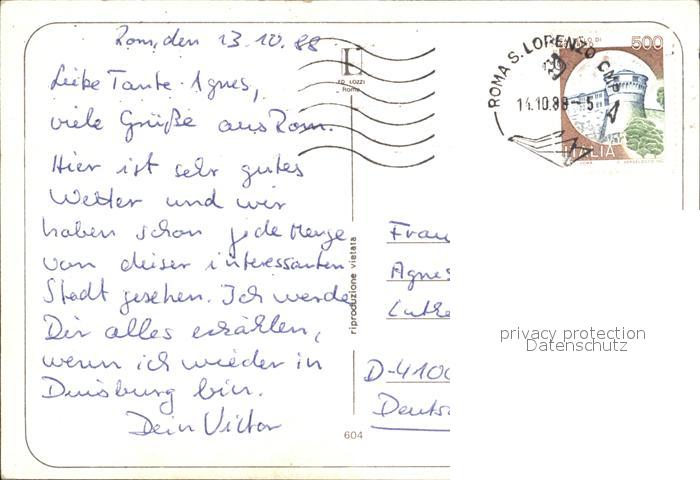 Rom, den 13.10.88
Liebe Tante Agnes,
viele Grüße aus Rom.
Hier ist sehr gutes
Wetter und wir
haben schon jede Menge
von dieser interessanten
Stadt gesehen. Ich werde
Dir alles erzählen,
wenn ich wieder in
Duisburg bin.
Dein Victor
L
ED LOZZI
Roma
riproduzione vietata
604
ROMA S. LORENZO CMP
14.10.88 - 5
500
ITALIA
ROMA
Frau
Agnes
Luthe
D-4100
Deuts
privacy protection
Datenschutz